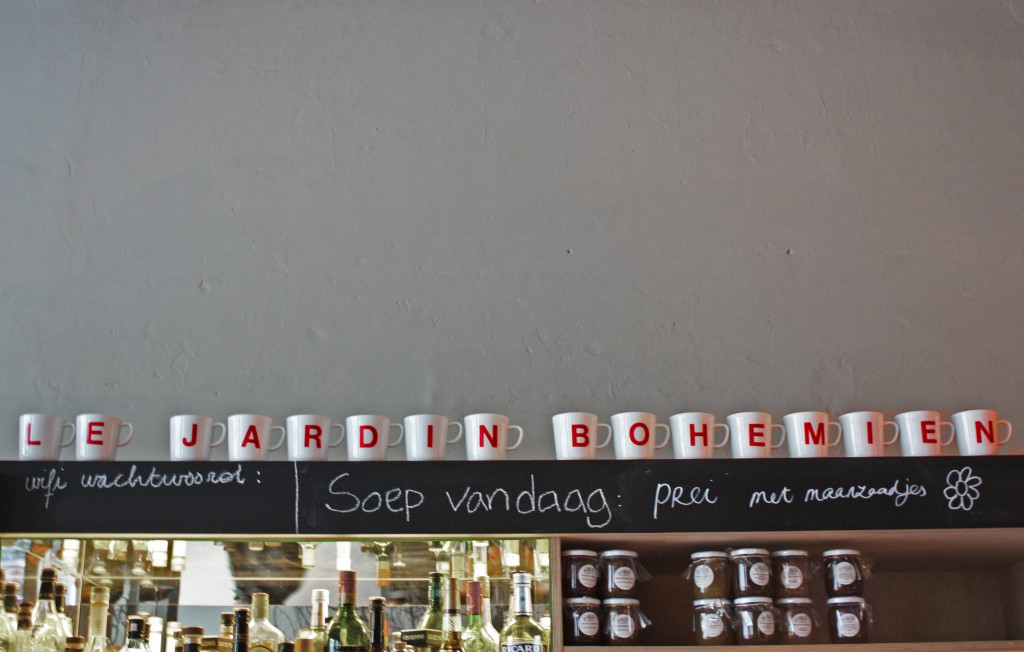 LE JARDIN BOHEMIEN
wifi wachtwoord:
Soep vandaag: prei met maanzaadjes
RICARD